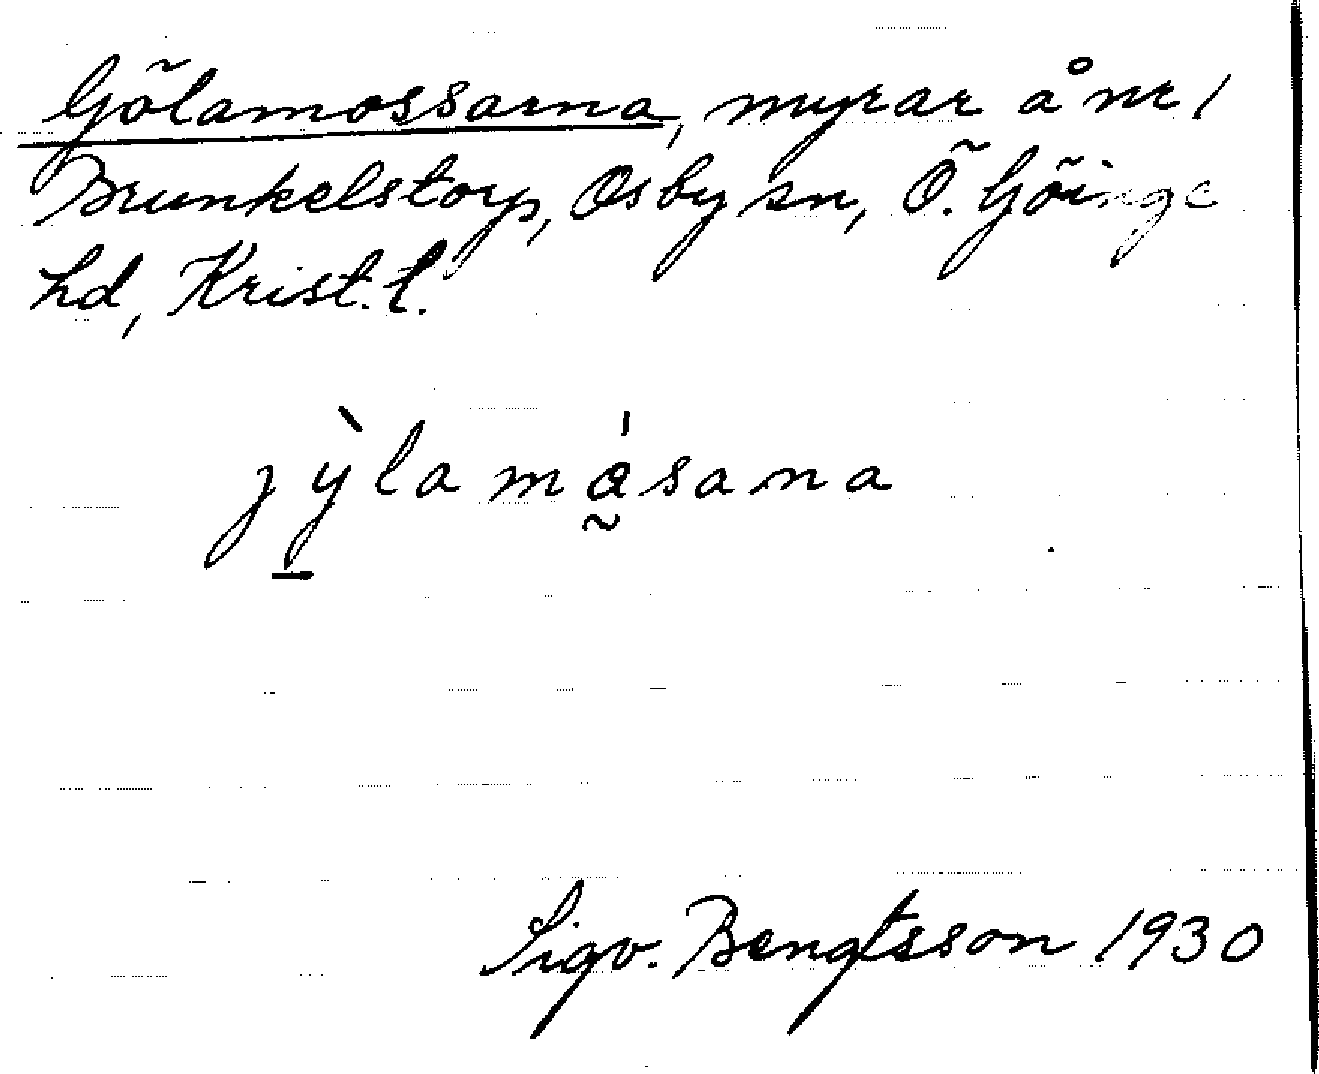 Gölamossarna, myrar å nr 1
Brunkelstorp, Osby sn, Ö. Göinge
hd, Krist. l.
jỳ̲lamá̰sana
Sigv. Bengtsson 1930